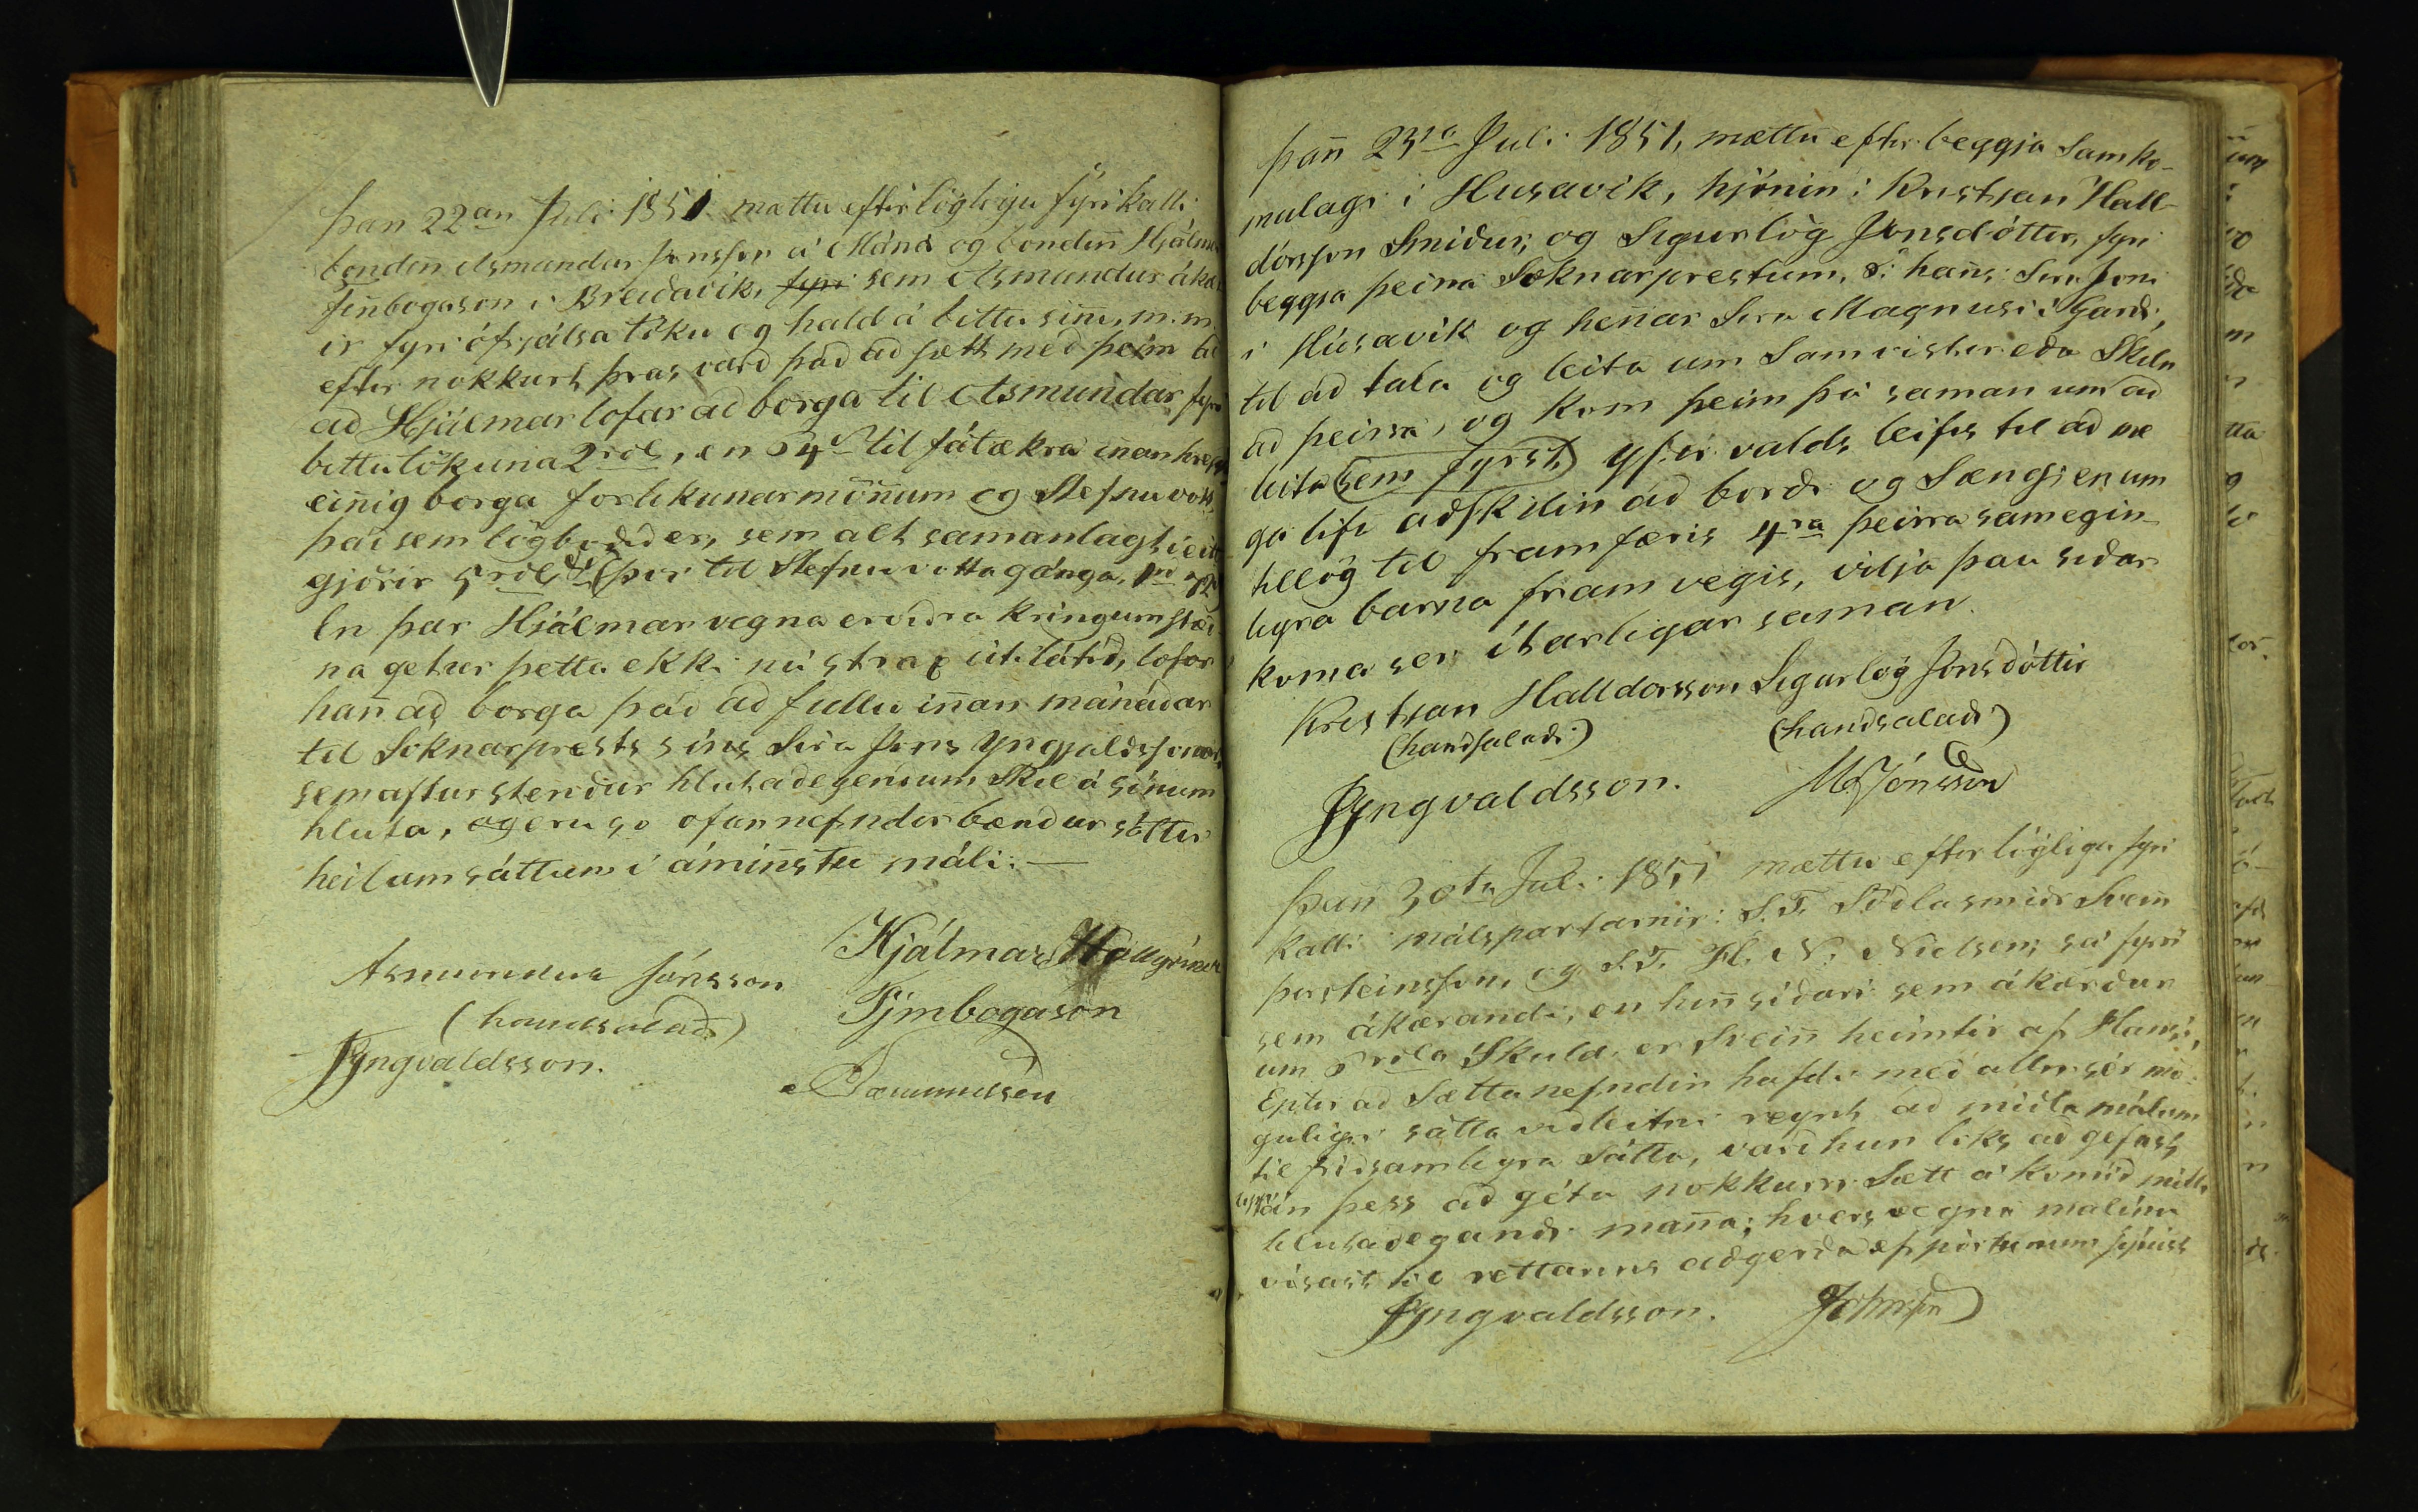 Þan 22an Juli 1851 mættu eftir löglegu fyrikalli,
bondin Asmundur Jonsson á Máná og bondin̄ Hjálmar
Fin̄bogason i Breidavik, fyri sem Asmundur ákær
ir fyri ófrjálsa töku og hald á bittu sin̄i, m. m.
eftir nokkurt þras, vard þad ad sætt med þeim til
ad Hjálmar lofar ad borga til Asmundar fyri
bittutökuna 2 rdl, en 4 til fátækra in̄an hrepps
ein̄ig borga forlikunarmön̄um og Stefnuvott
þad sem lögbodid er, sem alt samanlagt
gjörir 5 rdl þar til Stefnuvotta gánga, 1rd 72
En þar Hjálmar vegna erviðra kringumstæð-
na getur þetta ekki nú strax útilátid, lofar
han̄ að borga þad ad fullu in̄an mánadar
til Soknarprests sins Sira Jons Yngjaldssonar,
sem aftur stendur hlutadegendum Skil á sinum
hluta, og eru so ofannefndir bændur sáttir
heilum sáttum i ámin̄stu máli. —
Asmundur Jónsson Hjálmar Hallgrímur
(handsalad) Finbogason
JYngvaldsson.
Þan̄ 23ia Juli 1851, mættu eftir beggja Samko-
mulagi i Husavik, hjónin: Kristjan Hall-
dórsson Smidur, og Sigurlög Jonsdóttir, fyri
beggja þeirra Soknarprestum, ɔ: han̄s: Sira Joni
i Húsavik og hen̄ar Sira Magnusi i Garði,
til ad tala og leita um Samvistir eða Skiln
ad þeirra, og kom þeim þá saman um ad
leita (sem fyrst) yfirvalds leifis til ad me
ga lifa aðskilin ad borði og Sæng, en um
tillög til framfæris 4ra þeirra samegin-
legra barna framvegis, vilja þau siðar
koma ser ítarligar saman.
Kristjan Halldorsson Sigurlög Jonsdóttir
(handsalaði) (handsalaði)
JYngvaldsson. MJónsson
Þan̄ 30ta Juli 1851 mættu eftir lögligu fyri
kalli málspartarnir: S.T. Söðlasmiðr Svein̄
Þorsteinsson, og S.T. H. N. Nielsen; sá fyrri
sem ákærandi, en hin̄ siðari sem ákærdur
um rdla Skuld, er Svein̄ heimtir af Hansi,
Eptir ad Sættanefndin hafdi með allri sér mö-
guligri sátta viðleitni reynt ad miðla málum
til friðsamligra Sátta, varð hun loks að gefast
upp án þess að géta nokkurri Sætt á komið milli
hlutaðegandi man̄a; hvers vegna malinu
visast til rettarins aðgerða af portunum sýnist
JYngvaldsson. Johnsen